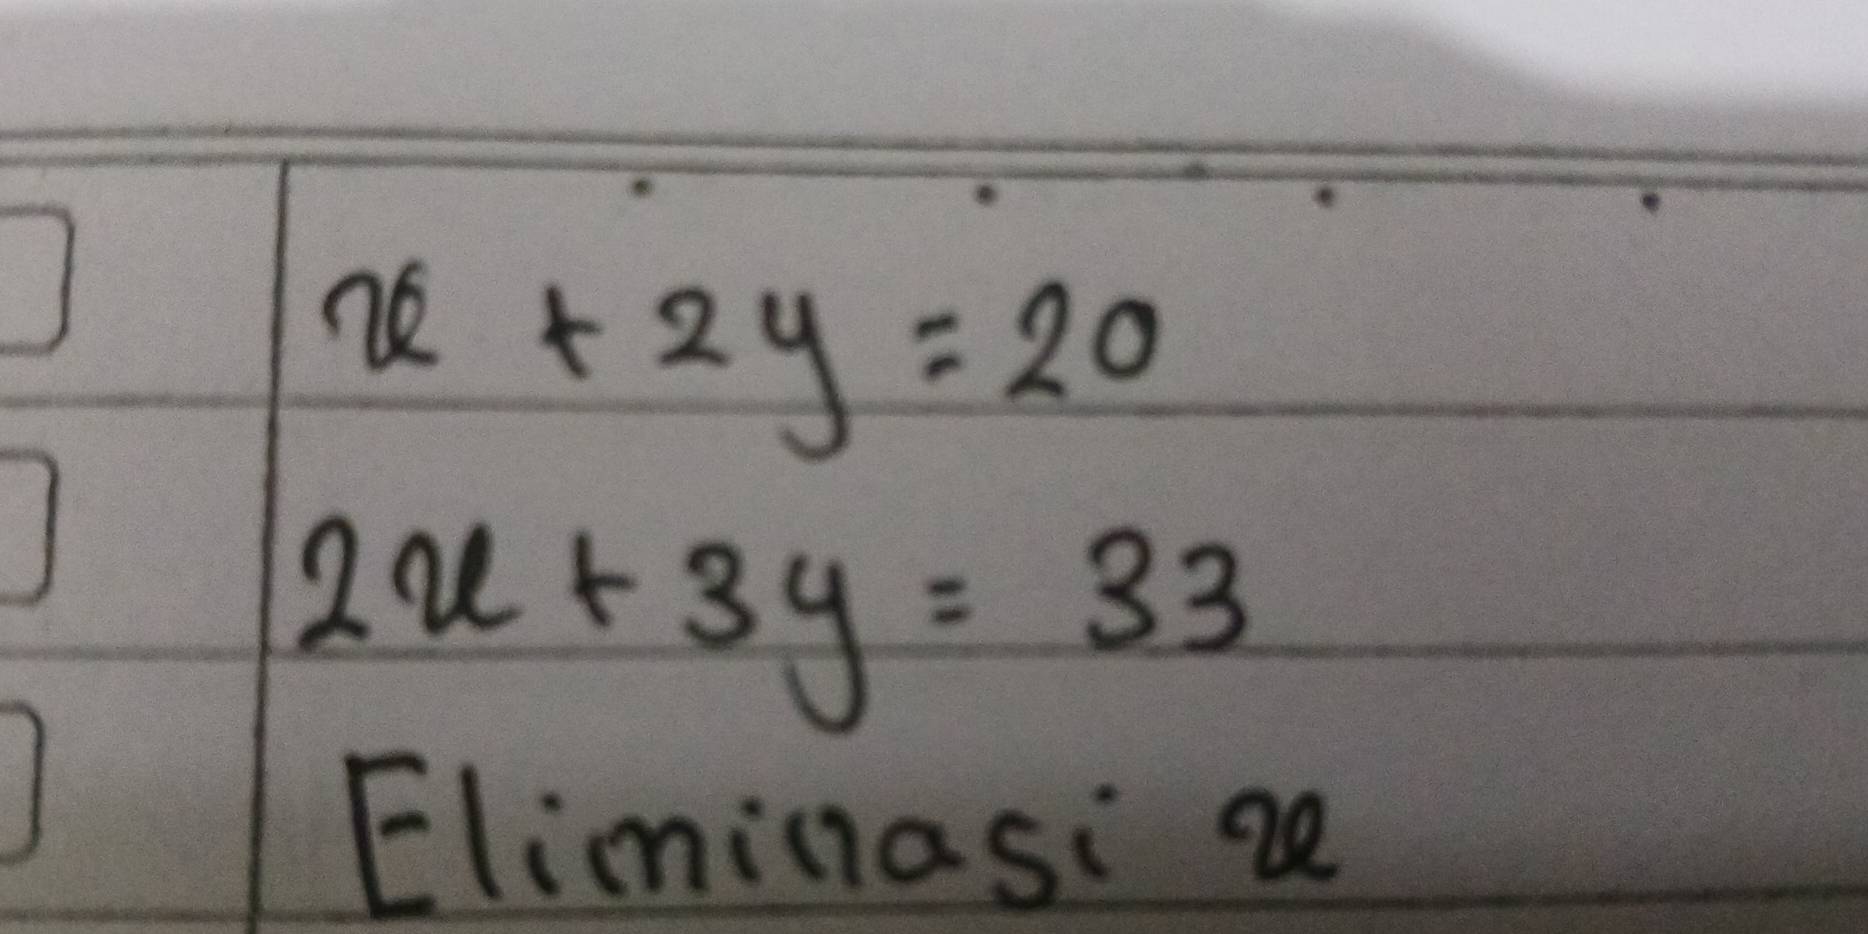 x + 2y = 20
2x + 3y = 33
Eliminasi x